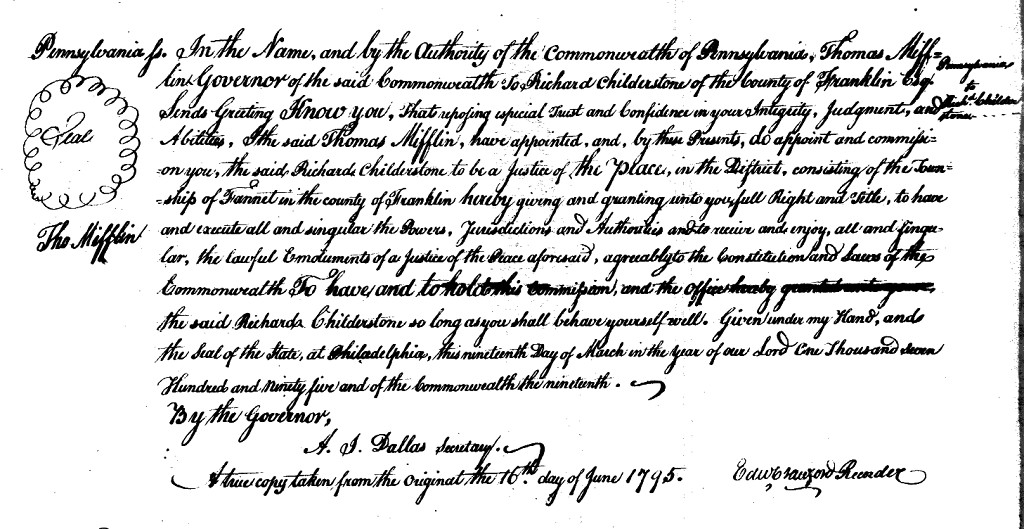 Pennsylvania ss. In the Name, and by the Authority of the Commonwealth of Pennsylvania, Thomas Miff=
lin Governor of the said Commonwealth To Richard Childerstone of the County of Franklin Esqr
Sends Greeting Know you, That reposing especial Trust and Confidence in your Integrity, Judgment, and
Abilities, I the said Thomas Mifflin, have appointed, and, by these Presents, do appoint and commissi=
on you, the said Richard Childerstone to be a Justice of the Place, in the District, consisting of the Town=
=ship of Fannet in the county of Franklin hereby giving and granting unto you, full Right and Title, to have
and execute all and singular the Powers, Jurisdictions and Authorities and to receive and enjoy, all and singu=
lar, the lawful Emoluments of a Justice of the Peace aforesaid, agreeably to the Constitution and Laws of the
Commonwealth To have and to hold this Commission, and the Office hereby granted unto you
the said Richard Childerstone so long as you shall behave yourself well. Given under my Hand, and
the Seal of the State, at Philadelphia, this nineteenth Day of March in the year of our Lord One Thousand seven
Hundred and Ninety five and of the Commonwealth the nineteenth.
By the Governor,
A. J. Dallas Secretary.
A true copy taken from the original the 16th day of June 1795. Edw Crawford Recorder
Seal
Tho Mifflin
Pennsylvania
to
Richd Childer
stone